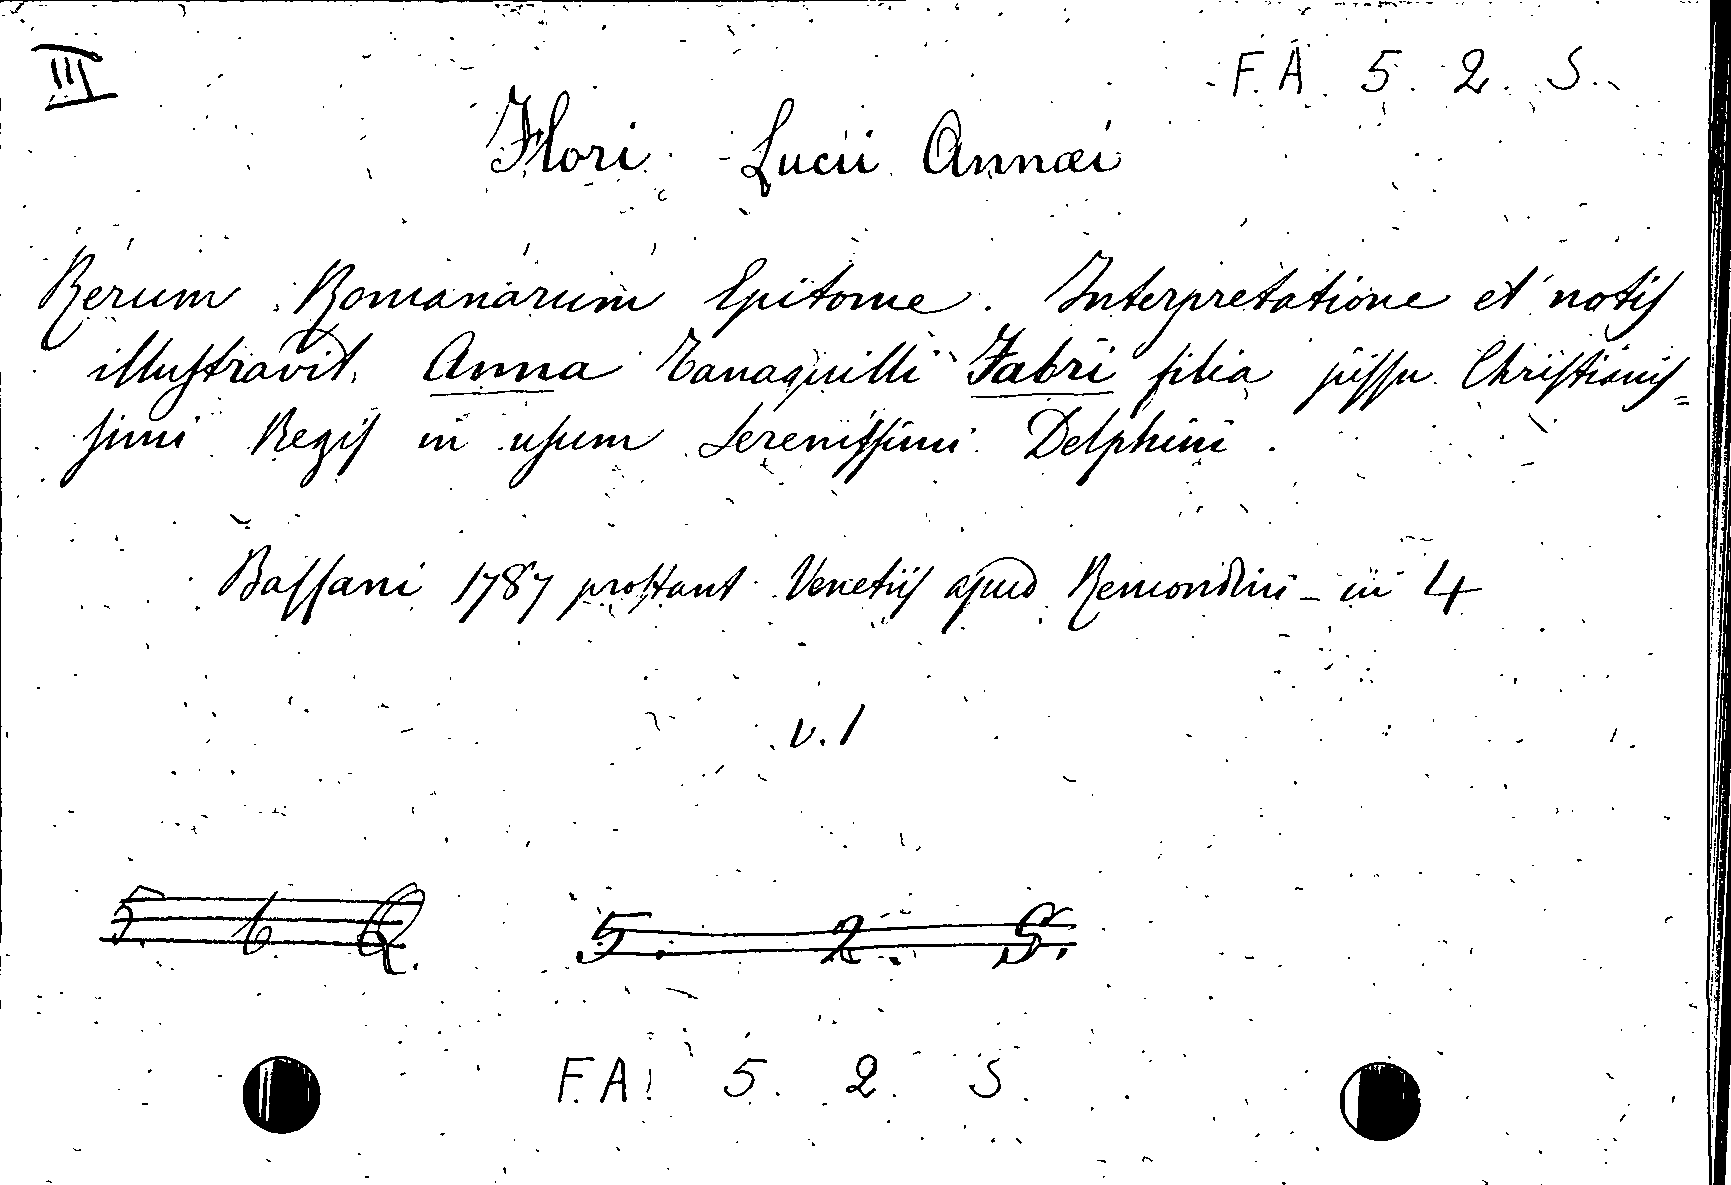 III
F. A. 5. 2. S.
Flori Lucii Annæi
Rerum Romanarum Epitome. Interpretatione et notis
illustravit Anna Tanaquilli Fabri filia jussu Christianis=
simi Regis in usum Serenissimi Delphini.
Bassani 1787 prostant Venetiis apud Remondini - in 4
v. 1
5. 6 Q.
5. 2. S.
F. A. 5. 2. S.